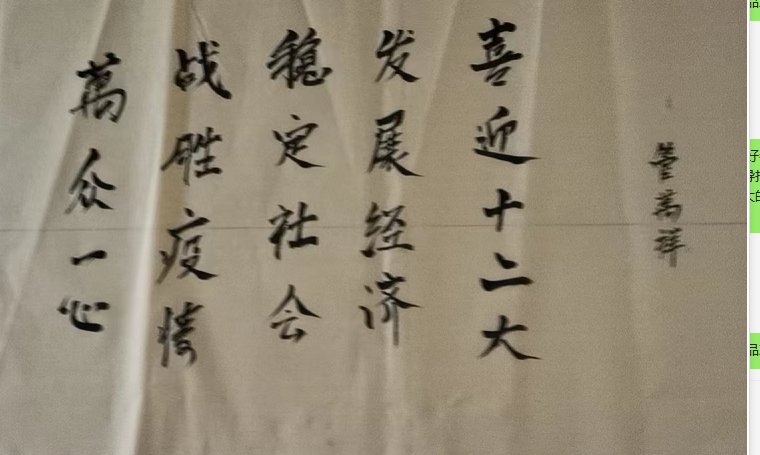 董萬祥
喜迎十二大
发展经济
稳定社会
战胜疫情
萬众一心